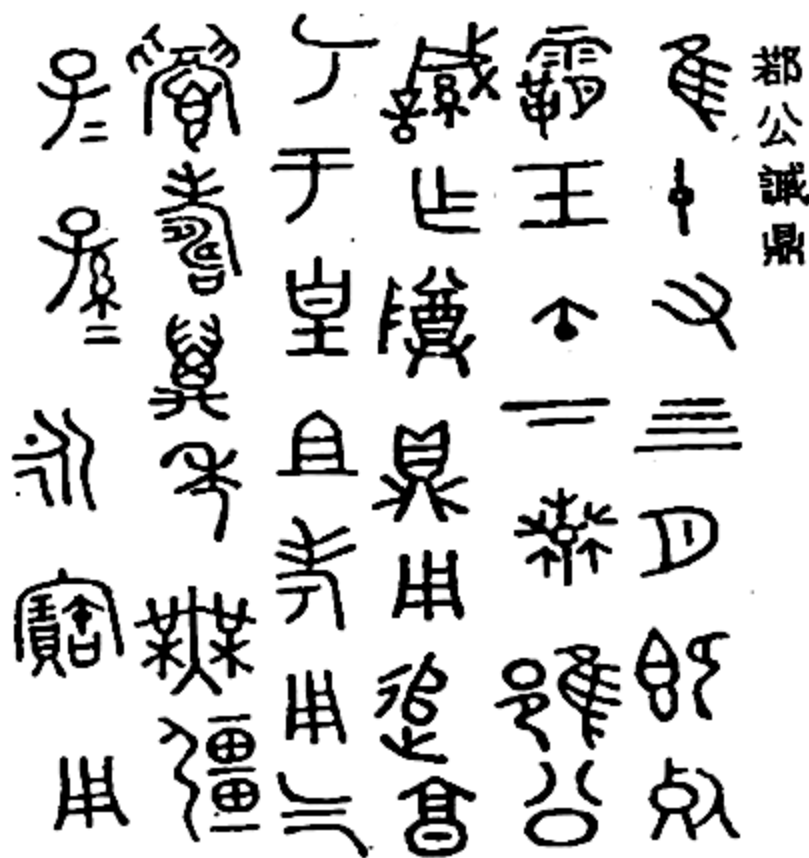 鄀公諴鼎
隹十又四月既死
霸壬午下蠚雍公
諴乍尊鼎用追享
丂于皇且考用气
眉壽萬年無疆
子=孫=永寶用